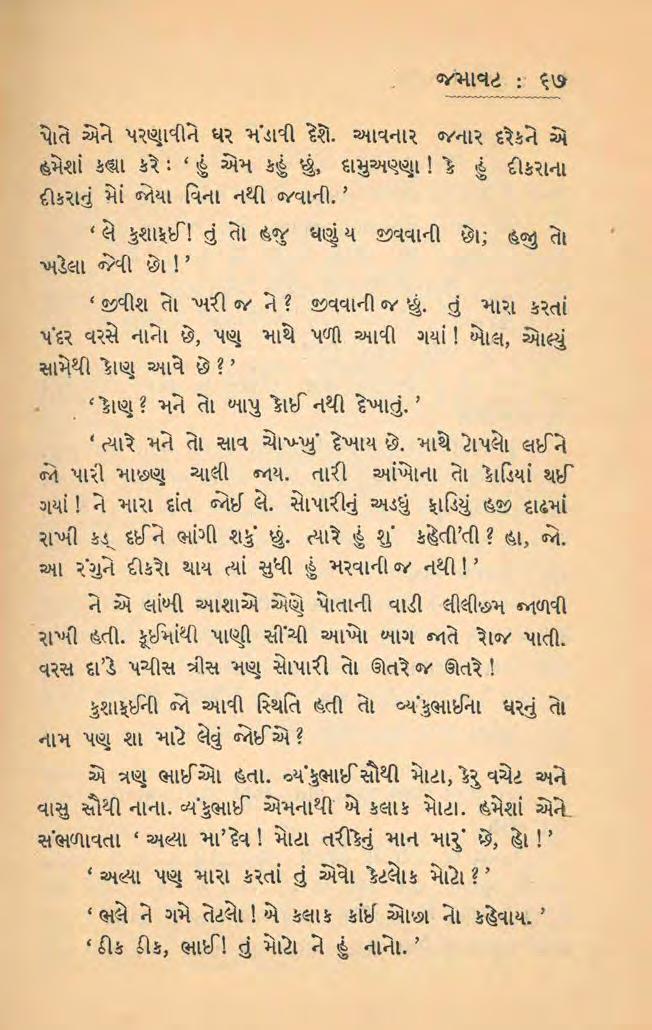 જમાવટ : ૬૭
પોતે એને પરણાવીને ઘર મંડાવી દેશે. આવનાર જનાર દરેકને એ
હમેશાં કહ્યા કરે : ‘ હું એમ કહું છું, દામુઅણ્ણા ! કે હું દીકરાના
દીકરાનું મોં જોયા વિના નથી જવાની. ’
‘ લે કુશાફઈ! તું તો હજુ ઘણું ય જીવવાની છો; હજી તો
ખડેલા જેવી છો ! ’
‘ જીવીશ તો ખરી જ ને ? જીવવાની જ છું. તું મારા કરતાં
પંદર વરસે નાનો છે, પણ માથે પળી આવી ગયાં ! બોલ, ઓલ્યું
સામેથી કોણ આવે છે ? ’
‘ કોણ ? મને તો બાપુ કોઈ નથી દેખાતું. ’
‘ ત્યારે મને તો સાવ ચોખ્ખું દેખાય છે. માથે ટોપલો લઈને
જો પારી માછણ ચાલી જાય. તારી આંખોના તો કોડિયાં થઈ
ગયાં ! ને મારા દાંત જોઈ લે. સોપારીનું અડધું ફાડિયું હજી દાઢમાં
રાખી કડ્ દઈને ભાંગી શકું છું. ત્યારે હું શું કહેતી’તી ? હા, જો.
આ રંગુને દીકરો થાય ત્યાં સુધી હું મરવાની જ નથી ! ’
ને એ લાંબી આશાએ એણે પોતાની વાડી લીલીછમ જાળવી
રાખી હતી. કૂઈમાંથી પાણી સીંચી આખો બાગ જાતે રોજ પાતી.
વરસ દા’ડે પચીસ ત્રીસ મણ સોપારી તો ઊતરે જ ઊતરે !
કુશાફઈની જો આવી સ્થિતિ હતી તો વ્યંકુભાઈના ઘરનું તો
નામ પણ શા માટે લેવું જોઈએ ?
એ ત્રણ ભાઈઓ હતા. વ્યંકુભાઈ સૌથી મોટા, કેરુ વચેટ અને
વાસુ સૌથી નાના. વ્યંકુભાઈ એમનાથી બે કલાક મોટા. હમેશાં એને
સંભળાવતા ‘ અલ્યા મા’દેવ ! મોટા તરીકેનું માન મારું છે, હો ! ’
‘ અલ્યા પણ મારા કરતાં તું એવો કેટલોક મોટો ? ’
‘ ભલે ને ગમે તેટલો ! બે કલાક કાંઈ ઓછા નો કહેવાય. ’
‘ ઠીક ઠીક, ભાઈ! તું મોટો ને હું નાનો. ’